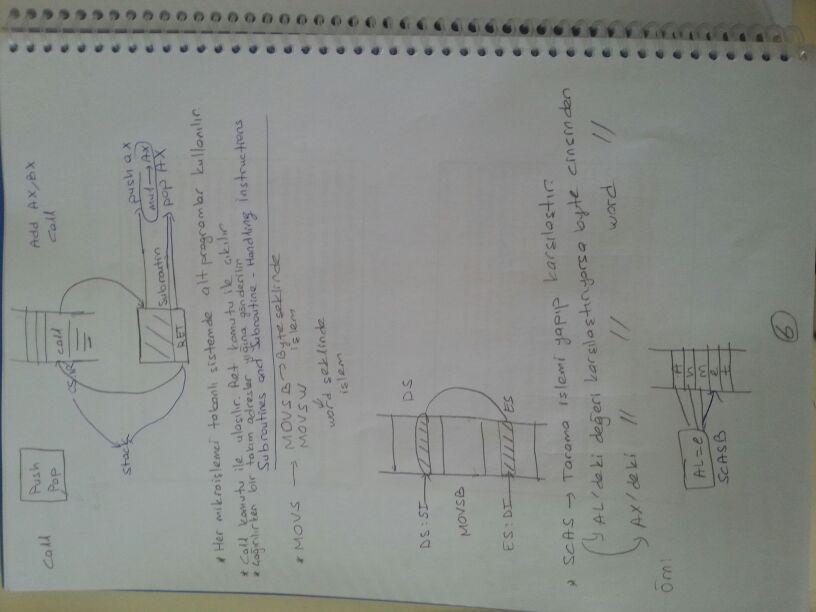 Call
Push
Pop
Add AX,BX
call
call
CS:IP
Stack
RET
Subroutin
push ax
mul → AX
pop AX
* Her mikroişlemci tabanlı sistemde alt programlar kullanılır.
* Call komutu ile ulaşılır. Ret komutu ile çıkılır
* Çağrılırken bir takım adresler yığına gönderilir
Subroutines and Subroutine - Handling instructions
* MOVS → MOVSB → Byte şeklinde işlem
MOVSW
word şeklinde
işlem
DS:SI
DS
MOVSB
ES:DI
ES
* SCAS → Tarama işlemi yapıp karşılaştır.
AL'deki değeri karşılaştırıyorsa byte cinsinden
AX'deki // // word //
Örn:
AL=e
SCASB
A
h
m
e
t
6